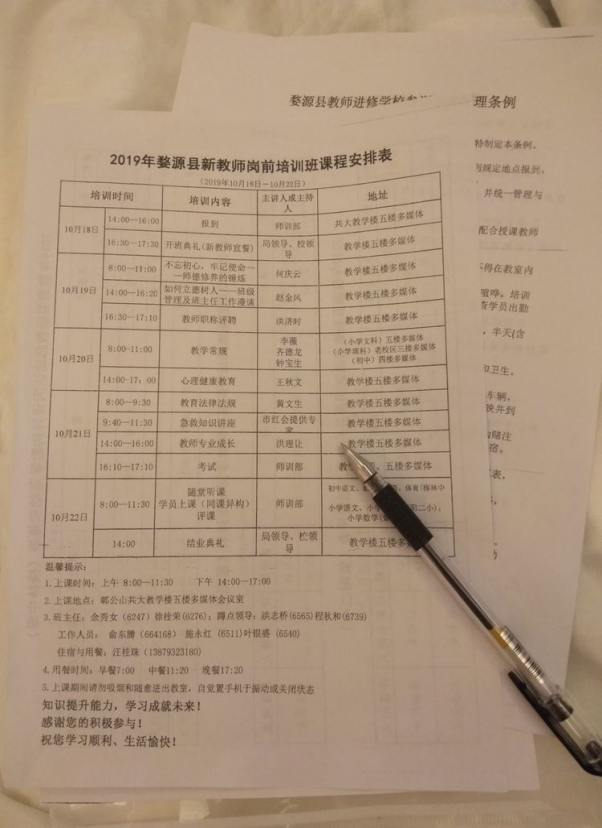 婺源县教师进修学校
理条例
特制定本条例。
与规定地点报到,
并统一管理与
配合授课教师
不得在教室内
喧哗, 培训
查学员出勤
, 半天(含
和卫生。
车辆,
2019年婺源县新教师岗前培训班课程安排表
(2019年10月18日-10月22日)
培训时间 培训内容 主讲人或主持人 地址
10月18日 14:00—16:00 报到 师训部 共大教学楼五楼多媒体
16:30—17:30 开班典礼(新教师宣誓) 局领导、校领导 教学楼五楼多媒体
10月19日 8:00—11:00 不忘初心,牢记使命——师德修养的锤炼 何庆云 教学楼五楼多媒体
14:00—16:20 如何立德树人——班级管理及班主任工作漫谈 赵金风 教学楼五楼多媒体
16:30—17:10 教师职称评聘 洪济时 教学楼五楼多媒体
10月20日 8:00-11:00 教学常规 李薇 齐德龙 钟宝生 (小学文科)五楼多媒体 (小学理科)老校区三楼多媒体 (初中)四楼多媒体
14:00-17:00 心理健康教育 王秋文 教学楼五楼多媒体
10月21日 8:00—9:30 教育法律法规 黄文生 教学楼五楼多媒体
9:40—11:30 急救知识讲座 市红会提供专家 教学楼五楼多媒体
14:00—16:00 教师专业成长 洪理让 教学楼五楼多媒体
16:10—17:10 考试 师训部 五楼多媒体
10月22日 8:00—11:30 随堂听课 学员上课(同课异构) 评课 师训部 初中语文、 体育(梅林中 小学语文、 二小); 小学数学(
14:00 结业典礼 局领导、校领导 教学楼五楼多
温馨提示:
1.上课时间:上午 8:00—11:30 下午 14:00—17:00
2.上课地点:鄣公山共大教学楼五楼多媒体会议室
3.班主任:余秀女(6247)徐桂荣(6276);蹲点领导:洪志桥(6565)程秋和(6739)
工作人员: 俞东腾(664168) 施永红(6511)叶银盛(6540)
住宿与用餐:汪桂珠(13879323180)
4.用餐时间:早餐7:00 中餐11:20 晚餐17:20
5.上课期间请勿吸烟和随意进出教室,自觉置手机于振动或关闭状态
知识提升能力,学习成就未来!
感谢您的积极参与!
祝您学习顺利、生活愉快!